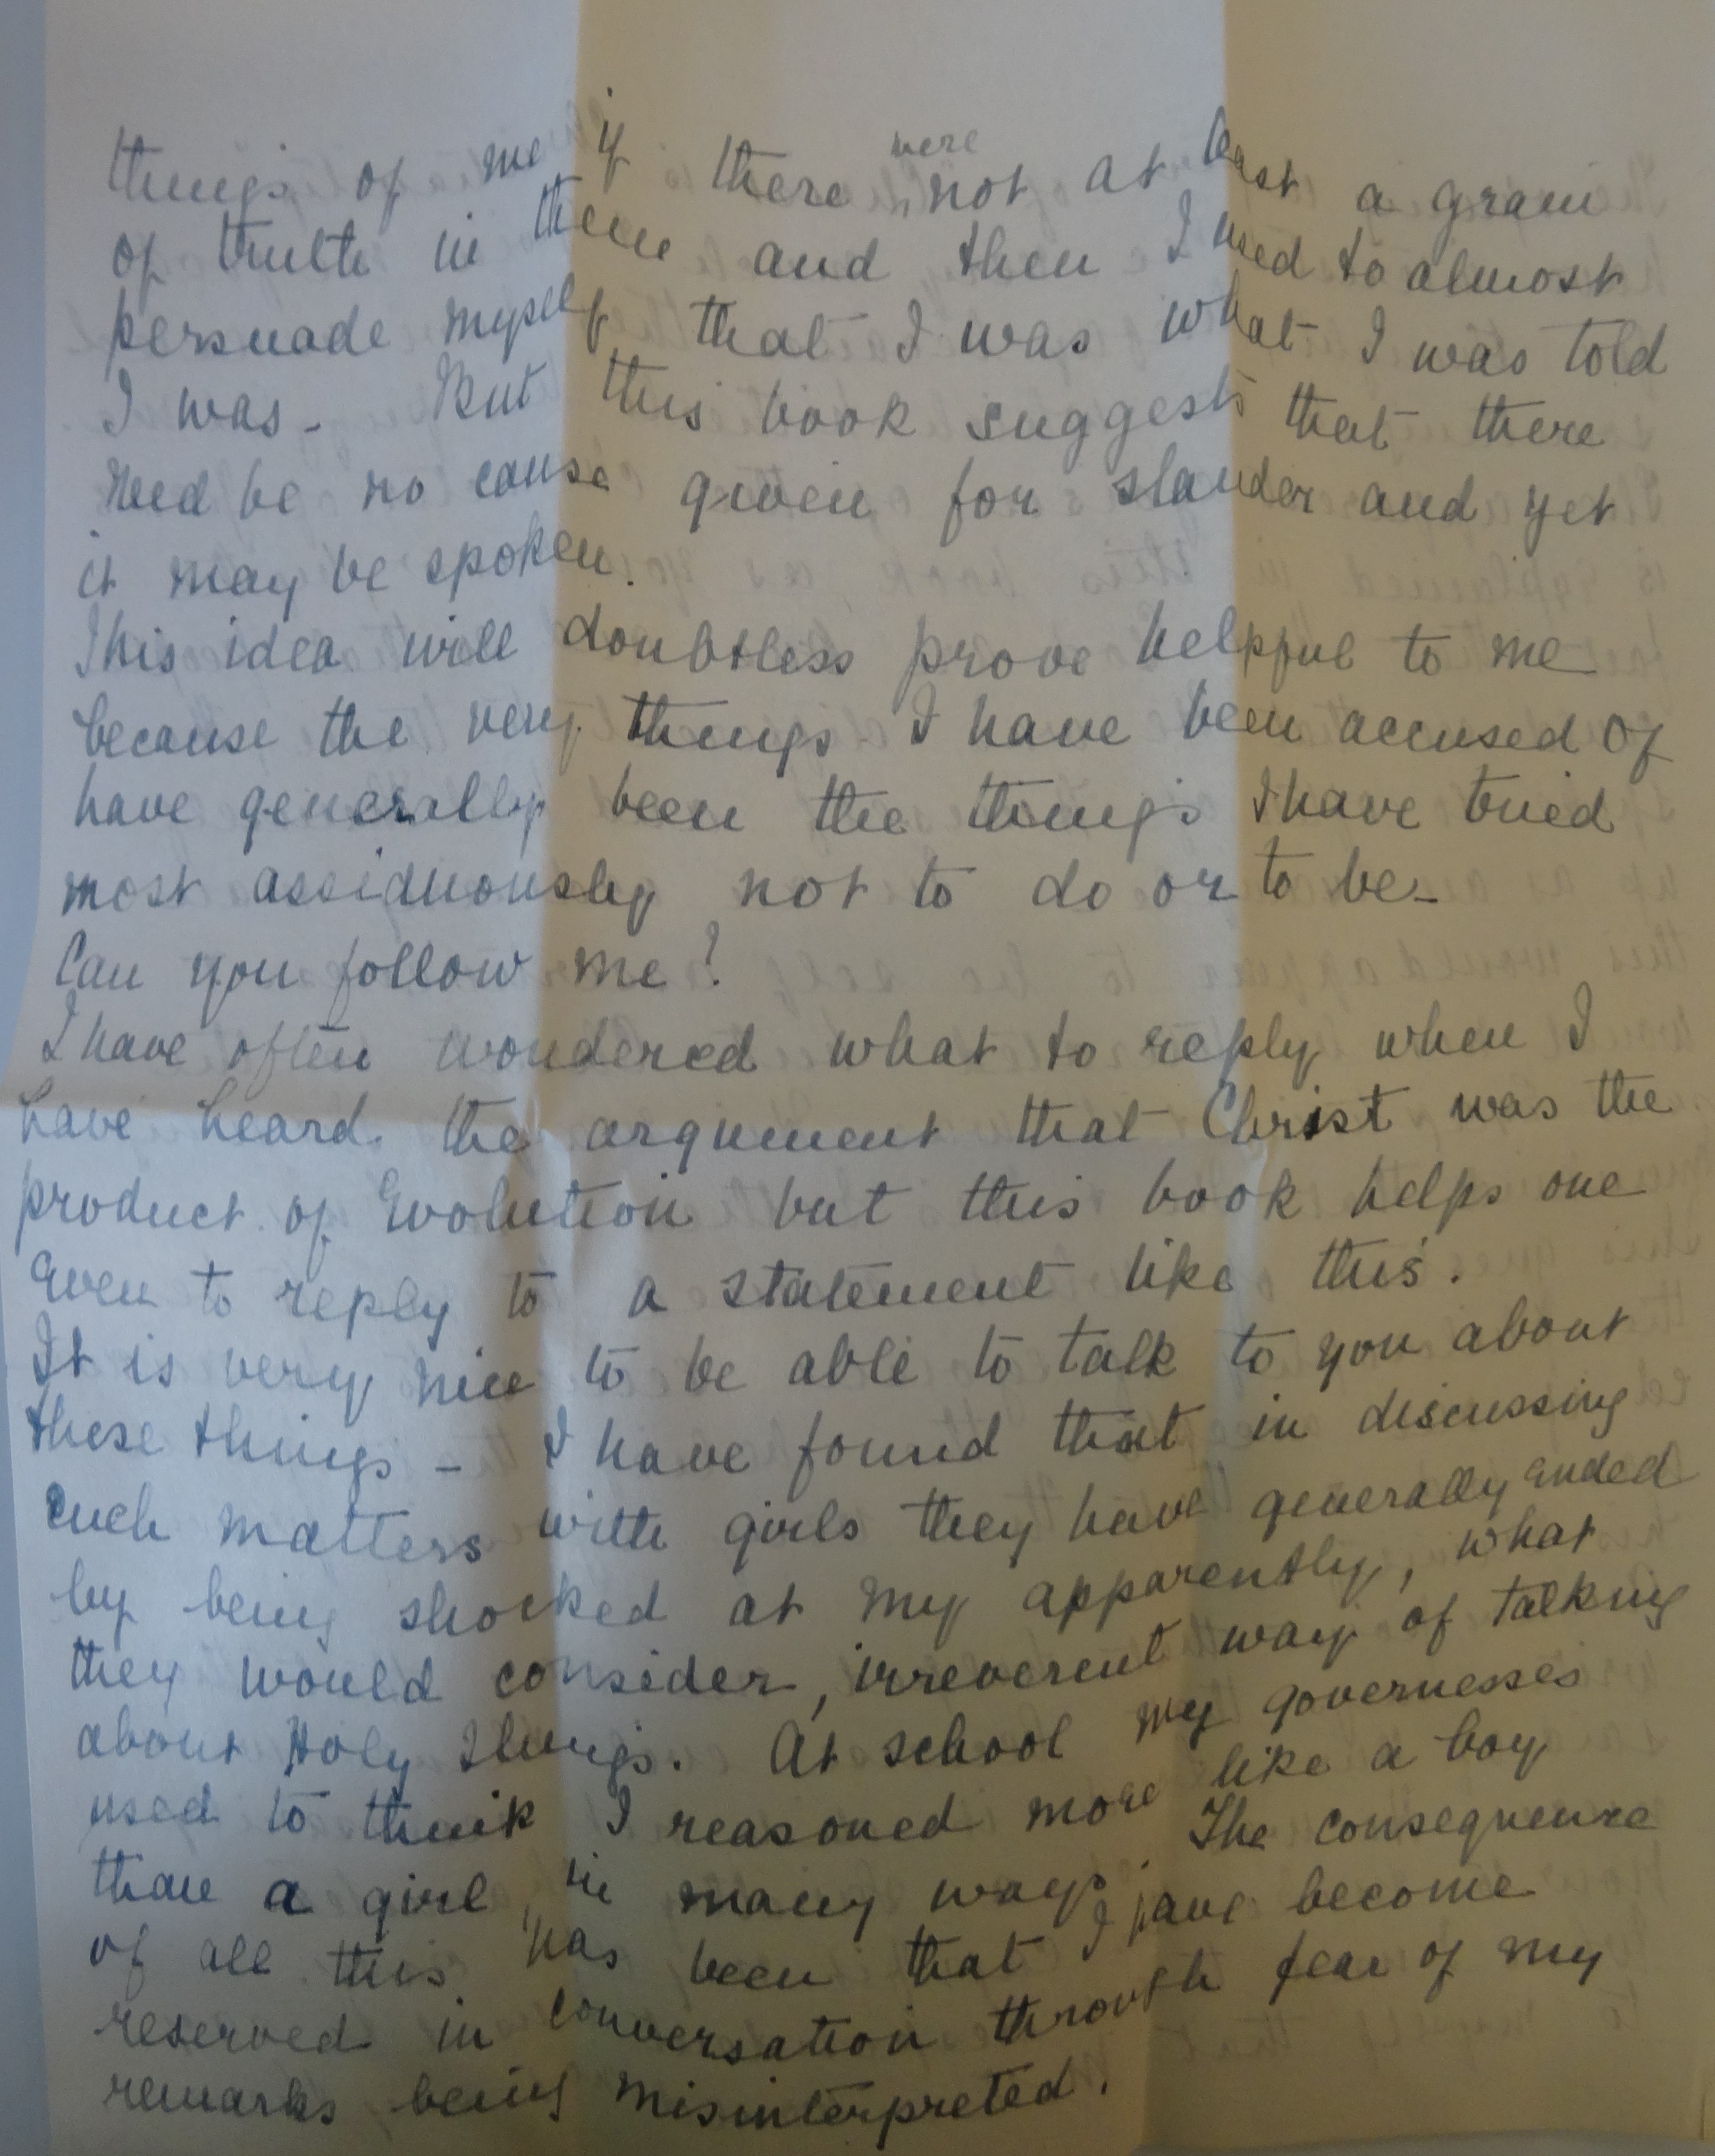 things of me if there were not at least a grain
of truth in them and then I used to almost
persuade myself that I was what I was told
I was - But this book suggests that there
need be no cause given for slander and yet
it may be spoken.
This idea will doubtless prove helpful to me
because the very things I have been accused of
have generally been the things I have tried
most assiduously not to do or to be -
Can you follow me?
I have often wondered what to reply when I
have heard the argument that Christ was the
product of Evolution but this book helps one
even to reply to a statement like this.
It is very nice to be able to talk to you about
these things - I have found that in discussing
such matters with girls they have generally ended
by being shocked at my apparently, what
they would consider, irreverent way of talking
about Holy Things. At school my governesses
used to think I reasoned more like a boy
than a girl, in many ways. The consequence
of all this has been that I have become
reserved in conversation through fear of my
remarks being misinterpreted.